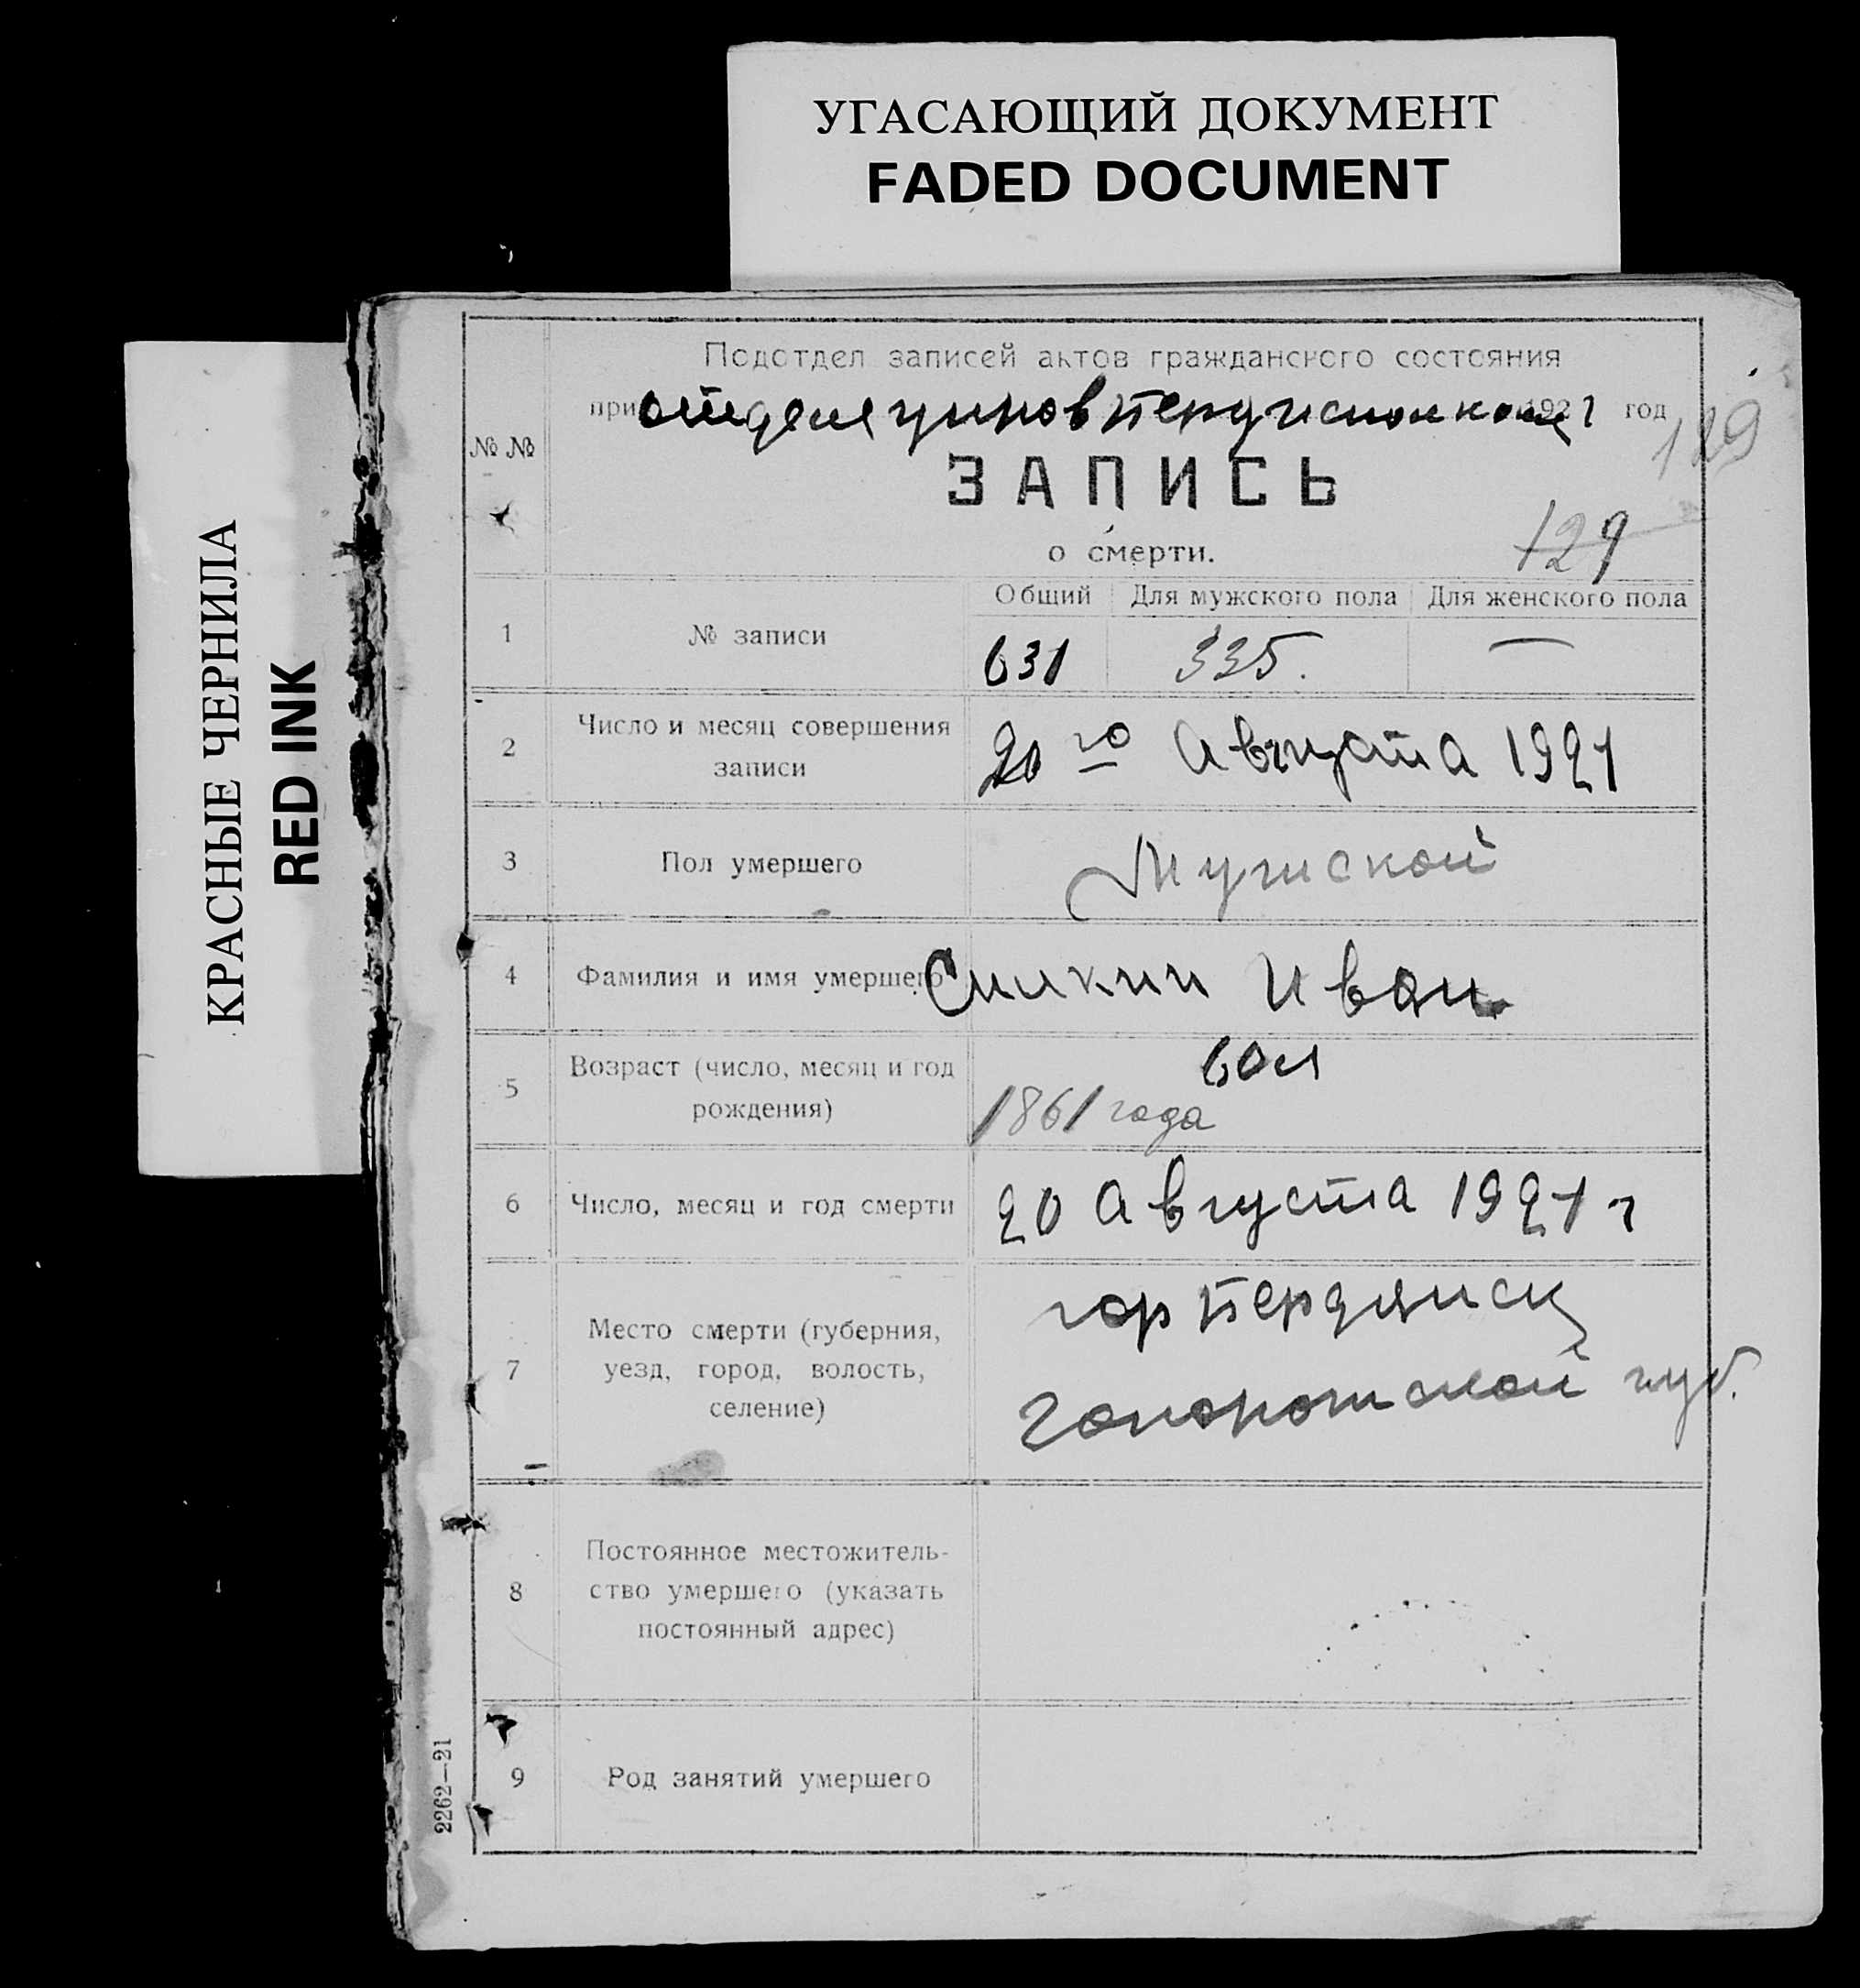 УГАСАЮЩИЙ ДОКУМЕНТ
FADED DOCUMENT
КРАСНЫЕ ЧЕРНИЛА
RED INK
Подотдел записей актов гражданского состояния
при отделе 192 1 год
129
№ №
ЗАПИСЬ
о смерти.
129
Общий Для мужского пола Для женского пола
1 № записи 631 335. —
2 Число и месяц совершения
записи
20 го Августа 1921
3 Пол умершего Мужской
4 Фамилия и имя умершего Иван
5 Возраст (число, месяц и год
рождения)
60 л
1861 года
6 Число, месяц и год смерти 20 Августа 1921 г
7 Место смерти (губерния,
уезд, город, волость,
селение)
гор Бердянск
губ.
8 Постоянное местожитель-
ство умершего (указать
постоянный адрес)
9 Род занятий умершего
2262—21